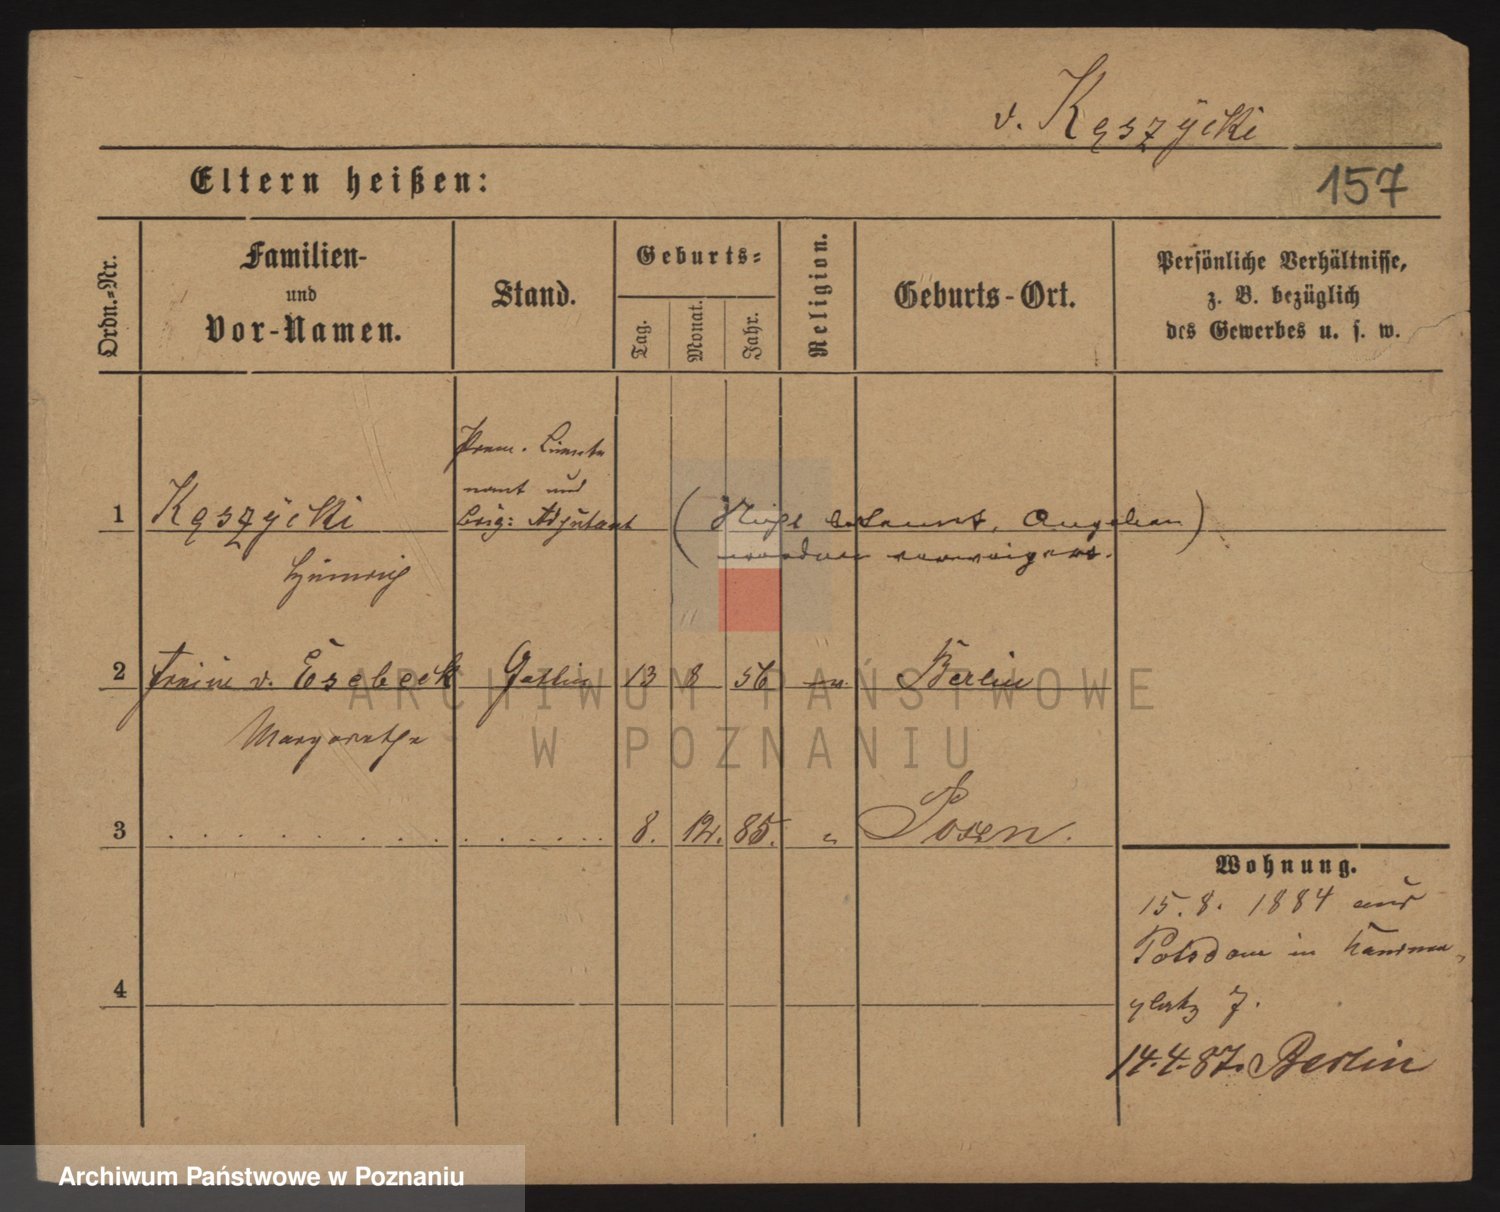 v. Kęszÿcki
157
Eltern heißen:
Ordn.=Nr.
Familien-
und
Vor-Namen.
Stand.
Geburts=
Tag.
Monat.
Jahr.
Religion.
Geburts-Ort.
Persönliche Verhältnisse,
z. B. bezüglich
des Gewerbes u. s. w.
Prem. Lieute
nant und
1 Kęszÿcki Brig: Adjutant (Nicht bekannt, Angaben
werden verweigert.)
Heinrich
2 Freiin v. Esebeck Gattin 13 8 56 ev. Berlin
Margarethe
3 8. 12. 85. " Posen.
Wohnung.
15. 8. 1884 aus
Potsdam in
platz 7.
14.4.87. Berlin
4
ARCHIWUM PAŃSTWOWE
W POZNANIU
Archiwum Państwowe w Poznaniu